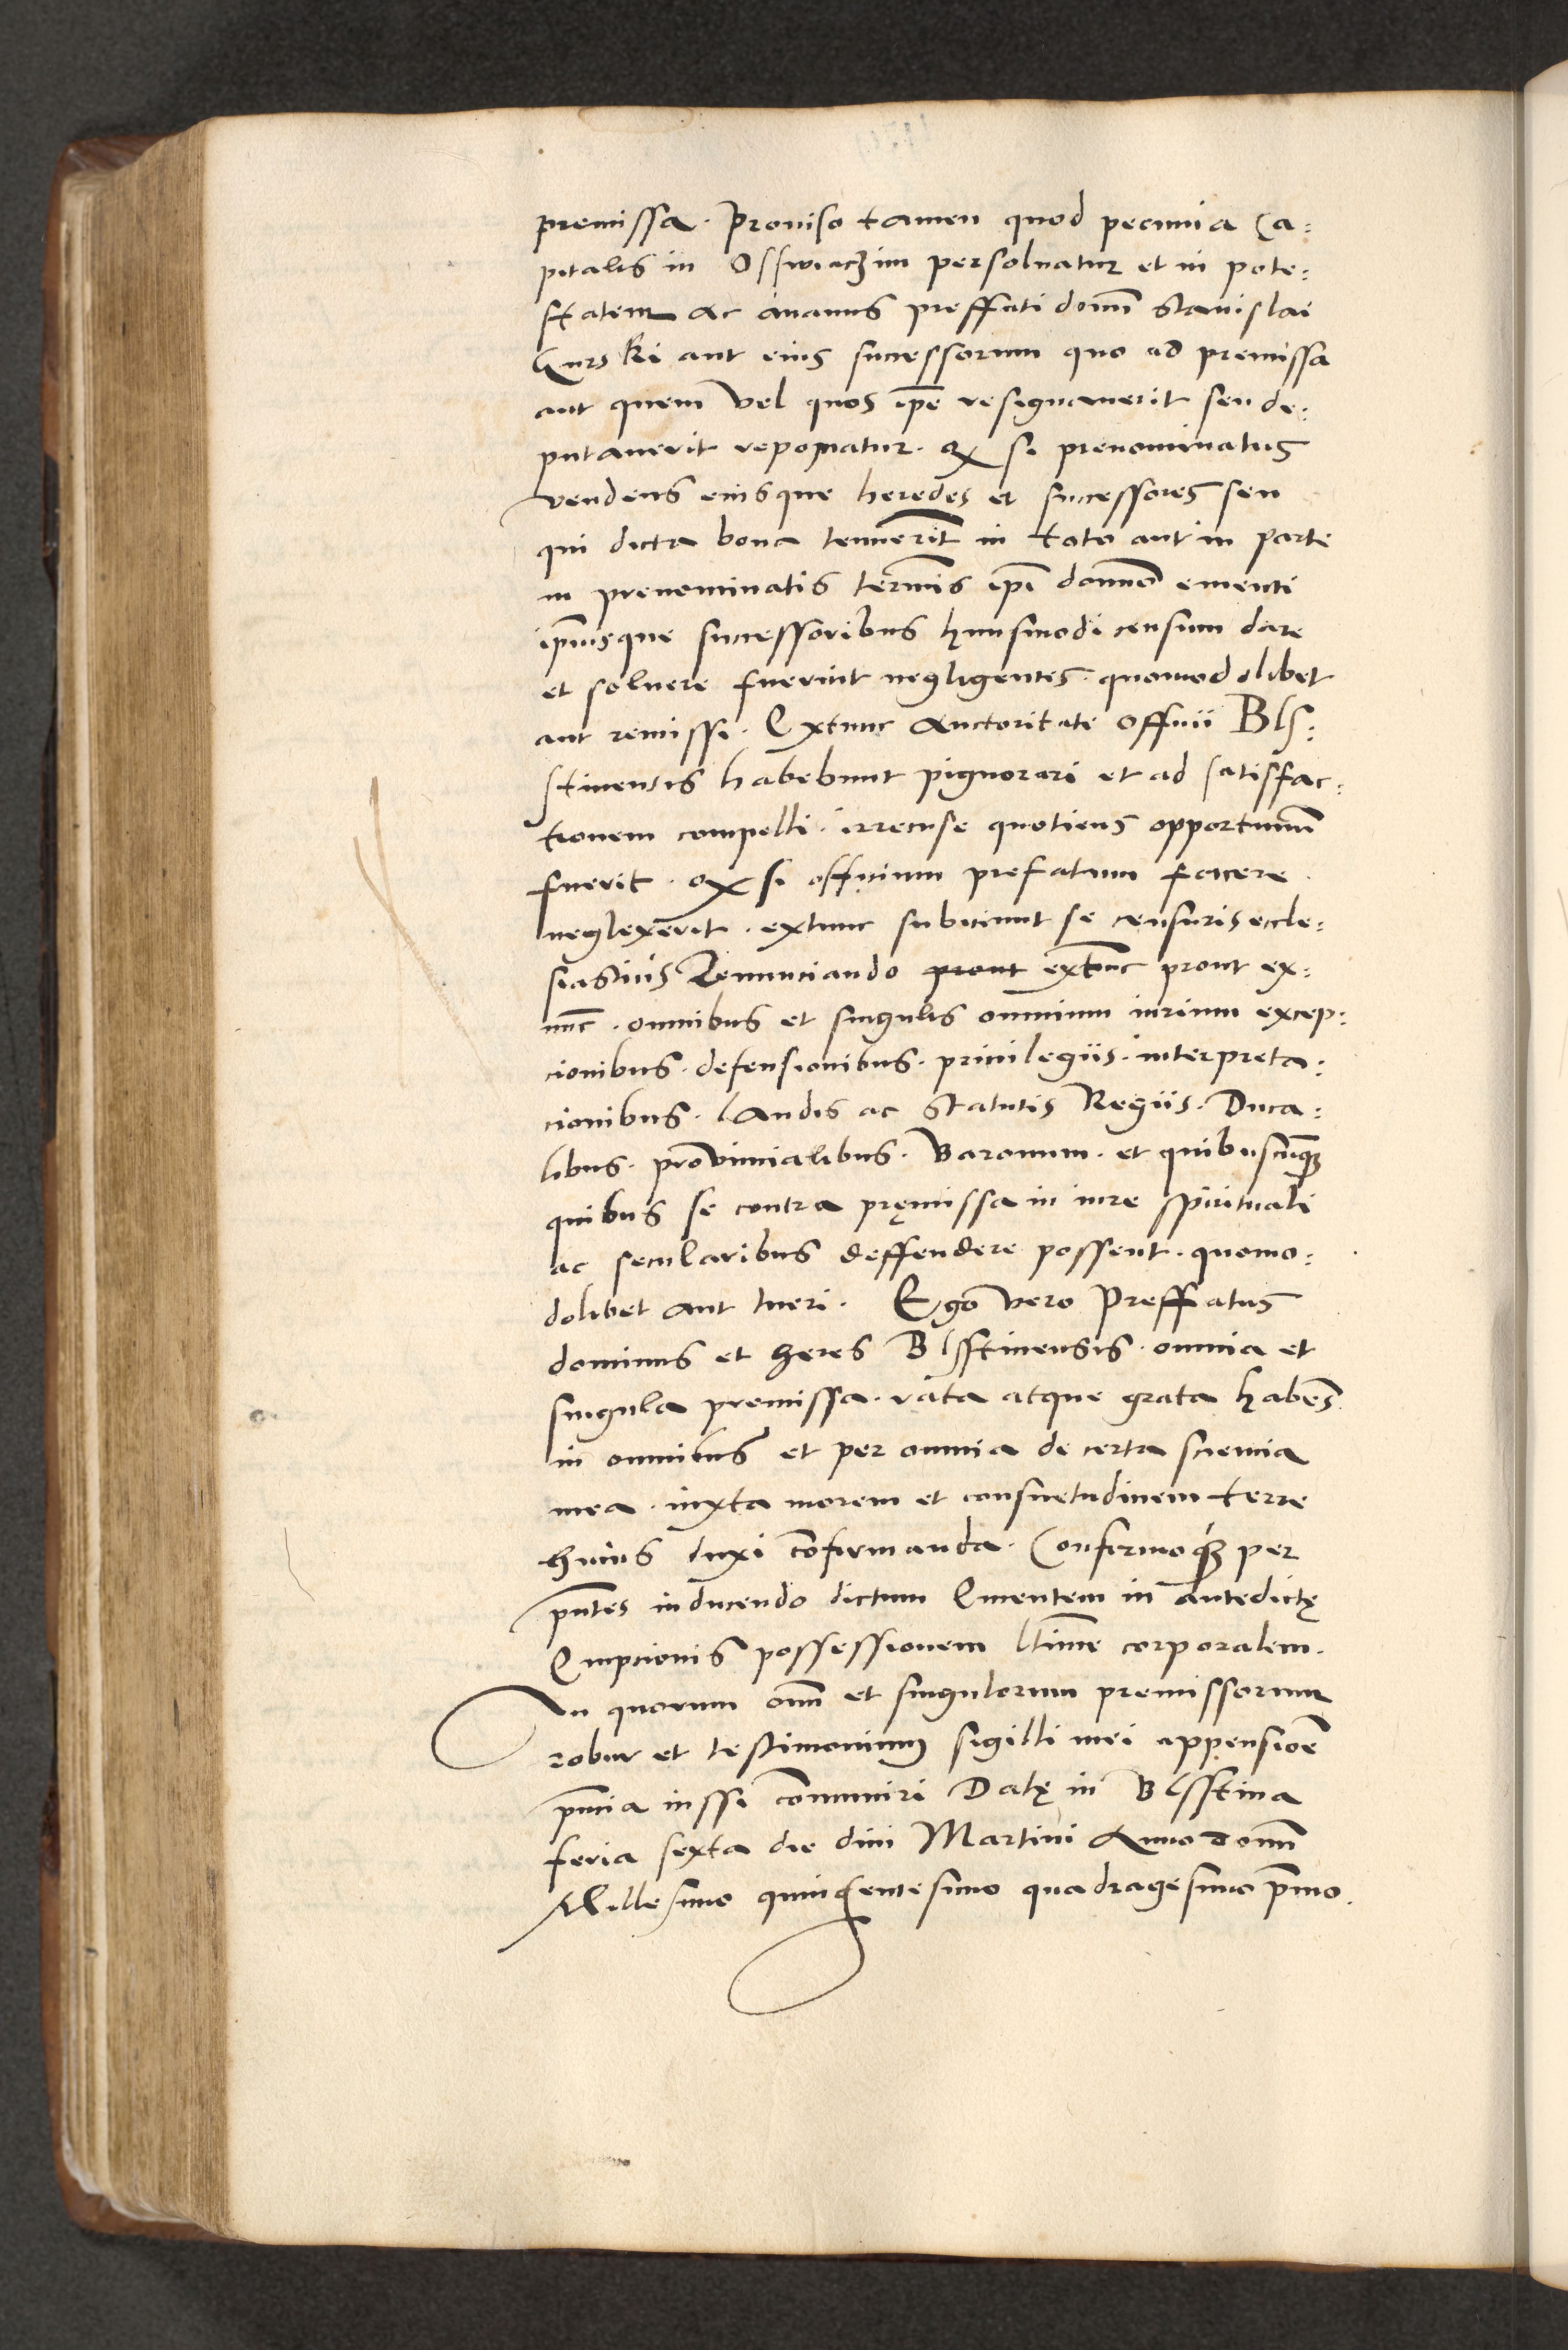 premissa. Proviso tamen quod pecunia Ca:
pitalis in Osswiaczim persoluatur et in pote:
statem ac manus preffati domini Stanislai
Gurski aut eius successorum quo ad premissa
aut quem vel quos ipse resignauerit seu de:
putauerit reponatur. Quod si prenominatus
vendens eiusque heredes et successores seu
qui dicta bona tenuerint in toto aut in parte
in prenominatis terminis ipsi domino ementi
ipsiusque successoribus huiusmodi censum dare
et soluere fuerint negligentes. quomodolibet
aut remissi. Extunc Auctoritate officii Bls:
stinensis habebunt pignorari et ad satisfac:
tionem compelli. irrecuse quotiens opportunum
fuerit. Quod si officium prefatum facere
neglexerit. extunc subiciunt se censuris eccle:
siasticis Renunciando prout extunc prout ex:
nunc. omnibus et singulis omnium iurium excep:
cionibus. defensionibus. priuilegiis. interpreta:
cionibus. laudis ac statutis Regiis. Duca:
libus. prouincialibus. Baronum. et quibuscunque
quibus se contra pręmissa in iure spirituali
ac secularibus deffendere possent. quomo:
dolibet aut tueri. Ego vero Preffatus
dominus et heres Blsstinensis. omnia et
singula premissa. rata atque grata habens
in omnibus et per omnia de certa sciencia
mea. iuxta morem et consuetudinem terre
huius duxi confirmanda. Confirmoque per
presentes inducendo dictum Ementem in antedictę
Empcionis possessionem legitime corporalem.
In quorum omnium et singulorum premissorum
robur et testimonium sigilli mei appensione
presencia iussi communiri Datę in Blsstina
feria sexta die diui Martini Anno domini
Millesimo quincentesimo quadragesimo primo.